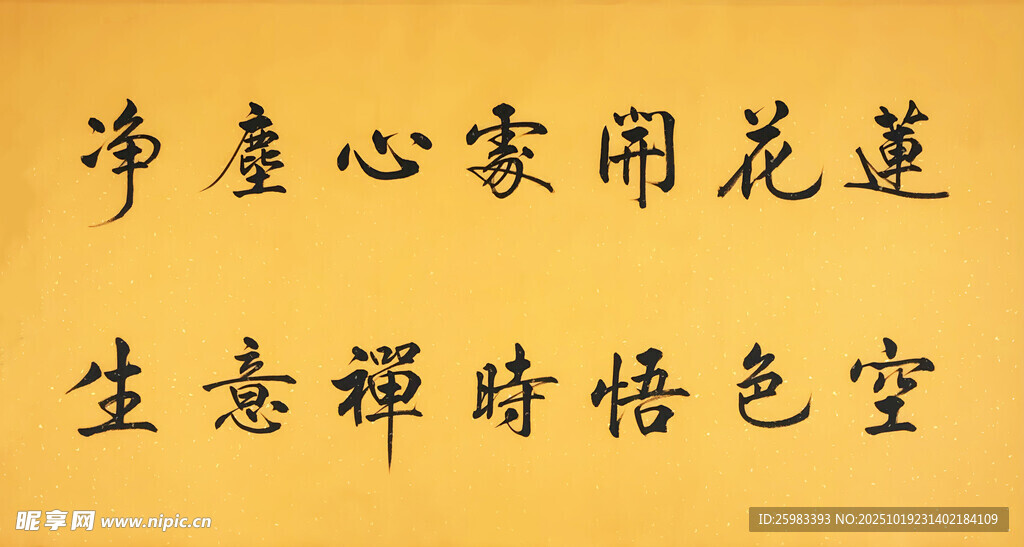 蓮花開處心塵净
空色悟時禪意生
昵享网 www.nipic.cn
ID:25983393 NO:20251019231402184109